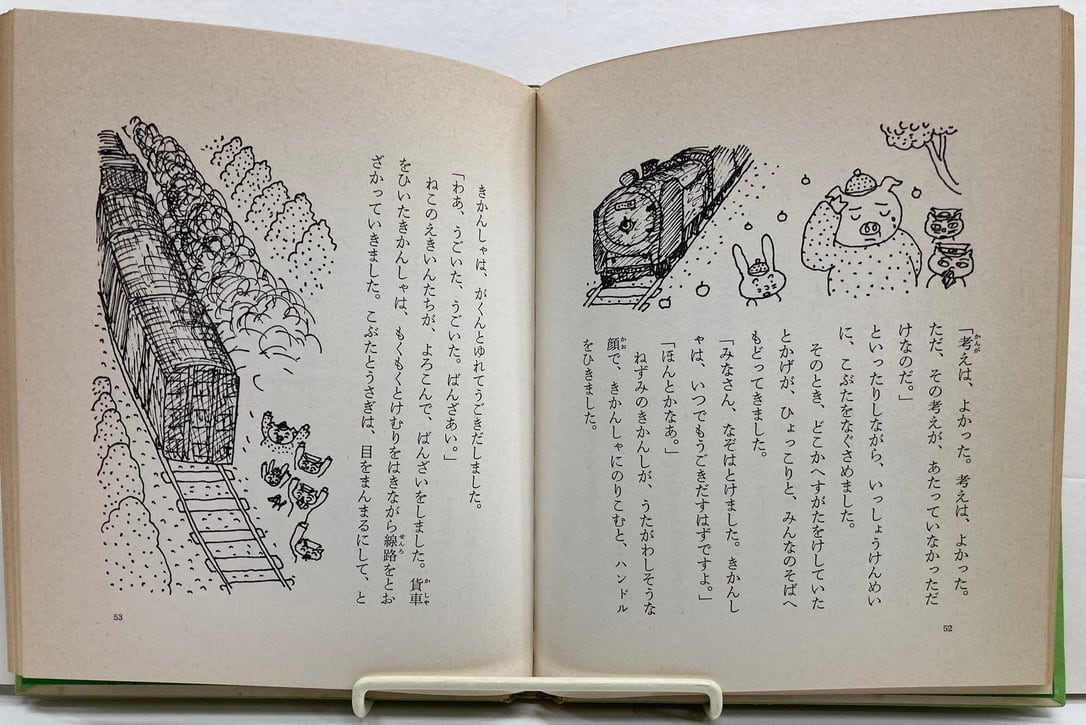 「考えは、よかった。考えは、よかった。
ただ、その考えが、あたっていなかっただ
けなのだ。」
といったりしながら、いっしょうけんめい
に、こぶたをなぐさめました。
そのとき、どこかへすがたをけしていた
とかげが、ひょっこりと、みんなのそばへ
もどってきました。
「みなさん、なぞはとけました。きかんし
ゃは、いつでもうごきだすはずですよ。」
「ほんとかなあ。」
ねずみのきかんしが、うたがわしそうな
顔で、きかんしゃにのりこむと、ハンドル
をひきました。
52
きかんしゃは、がくんとゆれてうごきだしました。
「わあ、うごいた、うごいた。ばんざあい。」
ねこのえきいんたちが、よろこんで、ばんざいをしました。貨車
をひいたきかんしゃは、もくもくとけむりをはきながら線路をとお
ざかっていきました。こぶたとうさぎは、目をまんまるにして、と
53